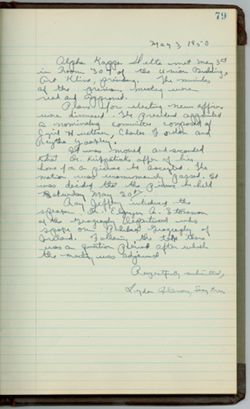 79
May 3, 1950
Alpha Kappa Delta met May 3rd
in Room 304 of the Union Building,
Art Kline, presiding. The minutes
of the previous meeting were
read and approved.
Plans for electing new officers
were discussed. The President appointed
a nominating committee composed of
Cecil H, Charles Gordon and
It was moved and seconded
that Dr. Kirkpatrick's offer of his
home for a picnic be accepted. The
motion was unanimously passed. It
was decided that the picnic be held
Saturday May 20th.
Ray Jeffery introduced the
speaker Dr.
of the Geography Department who
spoke on Political Geography of
Ireland. Following the talk there
was a question period after which
the meeting was adjourned.
Respectfully submitted,
Lydia